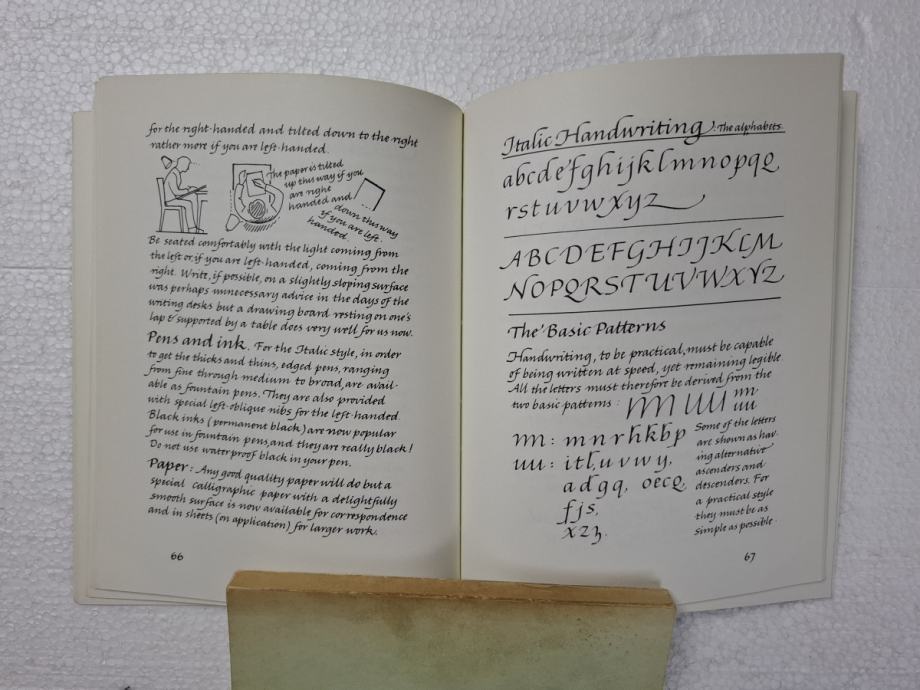 for the right-handed and tilted down to the right
rather more if you are left-handed.
The paper is tilted
up this way if you
are right
handed and
down this way
if you are left-
handed.
Be seated comfortably with the light coming from
the left or, if you are left-handed, coming from the
right. Write, if possible, on a slightly sloping surface
was perhaps unnecessary advice in the days of the
writing desks but a drawing board resting on one's
lap & supported by a table does very well for us now.
Pens and ink. For the Italic style, in order
to get the thicks and thins, edged pens, ranging
from fine through medium to broad, are avail-
able as fountain pens. They are also provided
with special left-oblique nibs for the left-handed.
Black inks (permanent black) are now popular
for use in fountain pens, and they are really black!
Do not use waterproof black in your pen.
Paper: Any good quality paper will do but a
special calligraphic paper with a delightfully
smooth surface is now available for correspondence
and in sheets (on application) for larger work.
66
Italic Handwriting: The alphabets.
abcdefghijklmnopqe
rstuvwxyz
ABCDEFGHIJKLM
NOPQRSTUVWXYZ
The Basic Patterns
Handwriting, to be practical, must be capable
of being written at speed, yet remaining legible.
All the letters must therefore be derived from the
two basic patterns:
m: mnrhkbp
uu: itl, uvwy,
adgq, oece,
fjs,
xzz.
Some of the letters
are shown as hav-
ing alternative
ascenders and
descenders. For
a practical style
they must be as
simple as possible.
67